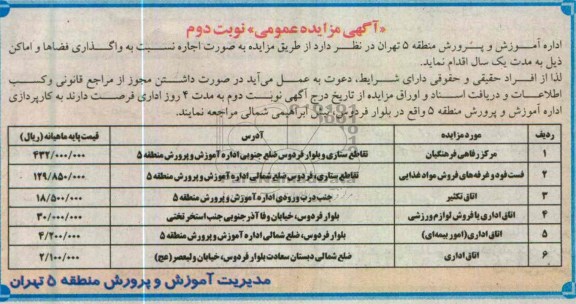 «آگهی مزایده عمومی» نوبت دوم
اداره آمـوزش و پـرورش منطقه ۵ تهران در نظـر دارد از طریق مزایده به صورت اجاره نسبت به واگـذاری فضاها و اماکن
ذیل به مدت یک سال اقدام نماید.
لذا از افـراد حقیقی و حقوقی دارای شرایط، دعوت به عمـل می‌آید در صورت داشتن مجوز از مراجع قانونی وکسب
اطلاعـات و دریافت اسناد و اوراق مزایده از تاریخ درج آگهی نوبـت دوم به مدت ۴ روز اداری فرصـت دارند به کارپردازی
اداره آموزش و پرورش منطقه ۵ واقع در بلوار فردوس بین ابراهیمی شمالی مراجعه نمایند.
ردیف مورد مزایده آدرس قیمت پایه ماهیانه (ریال)
۱ مرکز رفاهی فرهنگیان تقاطع ستاری و بلوار فردوس ضلع جنوبی اداره آموزش و پرورش منطقه ۵ ۴۳۲/۰۰۰/۰۰۰
۲ فست فود و غرفه‌های فروش مواد غذایی تقاطع ستاری و فردوس ضلع شمالی اداره آموزش و پرورش منطقه ۵ ۱۲۹/۸۵۰/۰۰۰
۳ اتاق تکثیر جنب درب ورودی اداره آموزش و پرورش منطقه ۵ ۱۸/۵۰۰/۰۰۰
۴ اتاق اداری یا فروش لوازم ورزشی بلوار فردوس، خیابان وفا آذر جنوبی جنب استخر تختی ۳۰/۰۰۰/۰۰۰
۵ اتاق اداری (امور بیمه‌ای) بلوار فردوس، ضلع شمالی اداره آموزش و پرورش منطقه ۵ ۴/۲۰۰/۰۰۰
۶ اتاق اداری ضلع شمالی دبستان سعادت بلوار فردوس، خیابان ولیعصر (عج) ۲/۱۰۰/۰۰۰
مدیریت آموزش و پرورش منطقه ۵ تهران